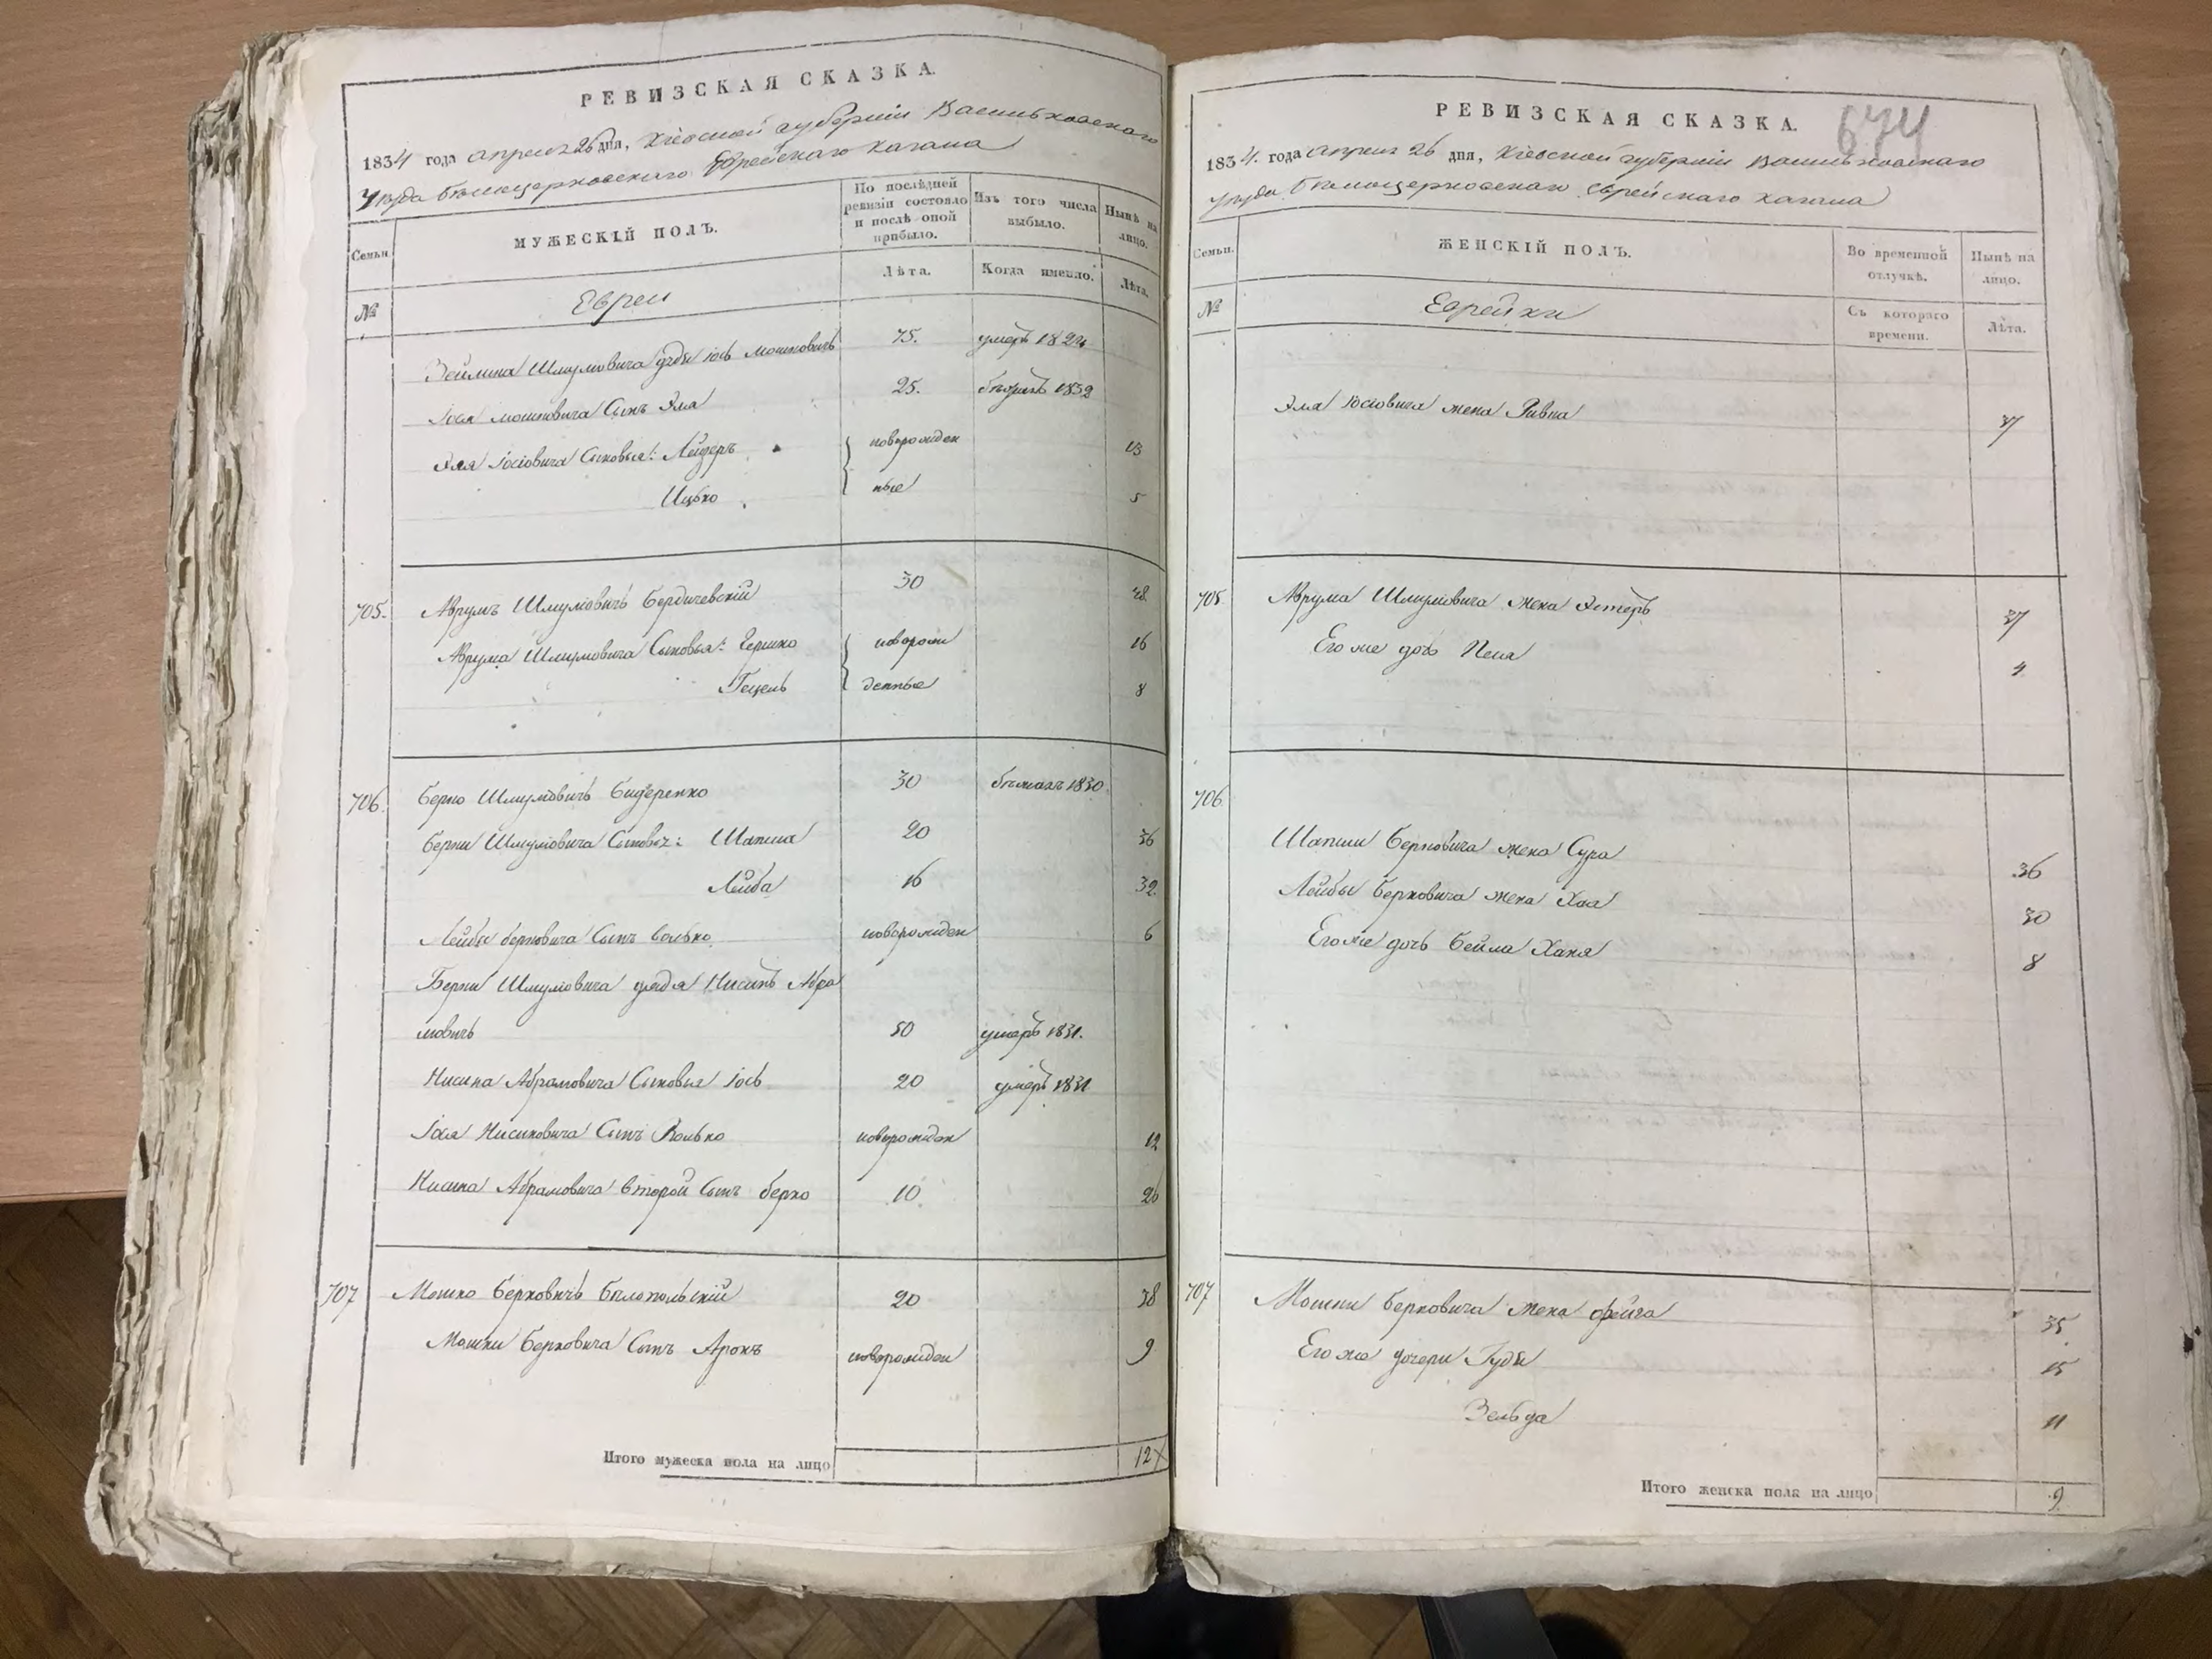 РЕВИЗСКАЯ СКАЗКА.
1834 года апреля 26 дня, Кіевской губерніи Васильковскаго
уезда белоцерковскаго Еврейскаго кагала
Семьи.
МУЖЕСКІЙ ПОЛЪ.
По послѣдней ревизіи состояло и послѣ оной прибыло.
Изъ того числа выбыло.
Нынѣ на лицо.
№
Евреи
Лѣта.
Когда имянно.
Лѣта.
Зейлика Шмулиовича дядя іось мошковичъ 75. умеръ 1824
Іося мошковича Сынъ Эля 25. 1832
Эля Іосіовича Сыновья: Лейзеръ новорожден 13
Ицько ные 5
705. Аврумъ Шмуліовичъ бердичевскій 30 48
Аврума Шмуліовича Сыновья: Гершко новорож 16
Гецель денные 8
706. берко Шмуліовичъ 30 бежалъ 1830
берки Шмуліовича Сыновья: Шапша 20 36
Лейба 16 32
Лейбы берковича Сынъ волько новорожден 6
Берки Шмуліовича дядя Нисинъ Абра
мовичъ 50 умеръ 1831.
Нисина Абрамовича Сыновья іось 20 умеръ 1831
Іося Нисиновича Сынъ Волько новорожден 12
Нисина Абрамовича второй Сынъ берко 10 26
707 Мошко берковичъ белопольскій 20 38
Мошки берковича Сынъ Аронъ новорожден 9
Итого мужеска пола на лицо 12
РЕВИЗСКАЯ СКАЗКА.
674
1834. года апреля 26 дня, Кіевской губерніи васильковскаго
уезда белоцерковскаго еврейскаго кагала
Семьи.
ЖЕНСКІЙ ПОЛЪ.
Во временной отлучкѣ.
Нынѣ на лицо.
№
Еврейки
Съ котораго времени.
Лѣта.
Эля Іосіовича жена Ривка 37
705 Аврума Шмуліовича жена Эстеръ 37
Его же дочь Песя 4
706
Шапши берковича жена Сура 36
Лейбы берковича жена Хая 30
Его же дочь бейла Ханя 8
707 Мошки берковича жена фейга 35
Его же дочери Гудя 15
Зельда 11
Итого женска пола на лицо 9